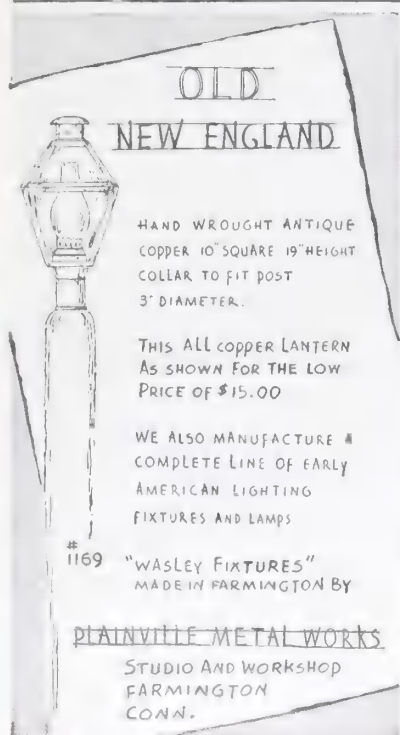 OLD
NEW ENGLAND
HAND WROUGHT ANTIQUE
COPPER 10" SQUARE 19" HEIGHT
COLLAR TO FIT POST
3" DIAMETER.
THIS ALL COPPER LANTERN
AS SHOWN FOR THE LOW
PRICE OF $15.00
WE ALSO MANUFACTURE A
COMPLETE LINE OF EARLY
AMERICAN LIGHTING
FIXTURES AND LAMPS
#1169
"WASLEY FIXTURES"
MADE IN FARMINGTON BY
PLAINVILLE METAL WORKS
STUDIO AND WORKSHOP
FARMINGTON
CONN.